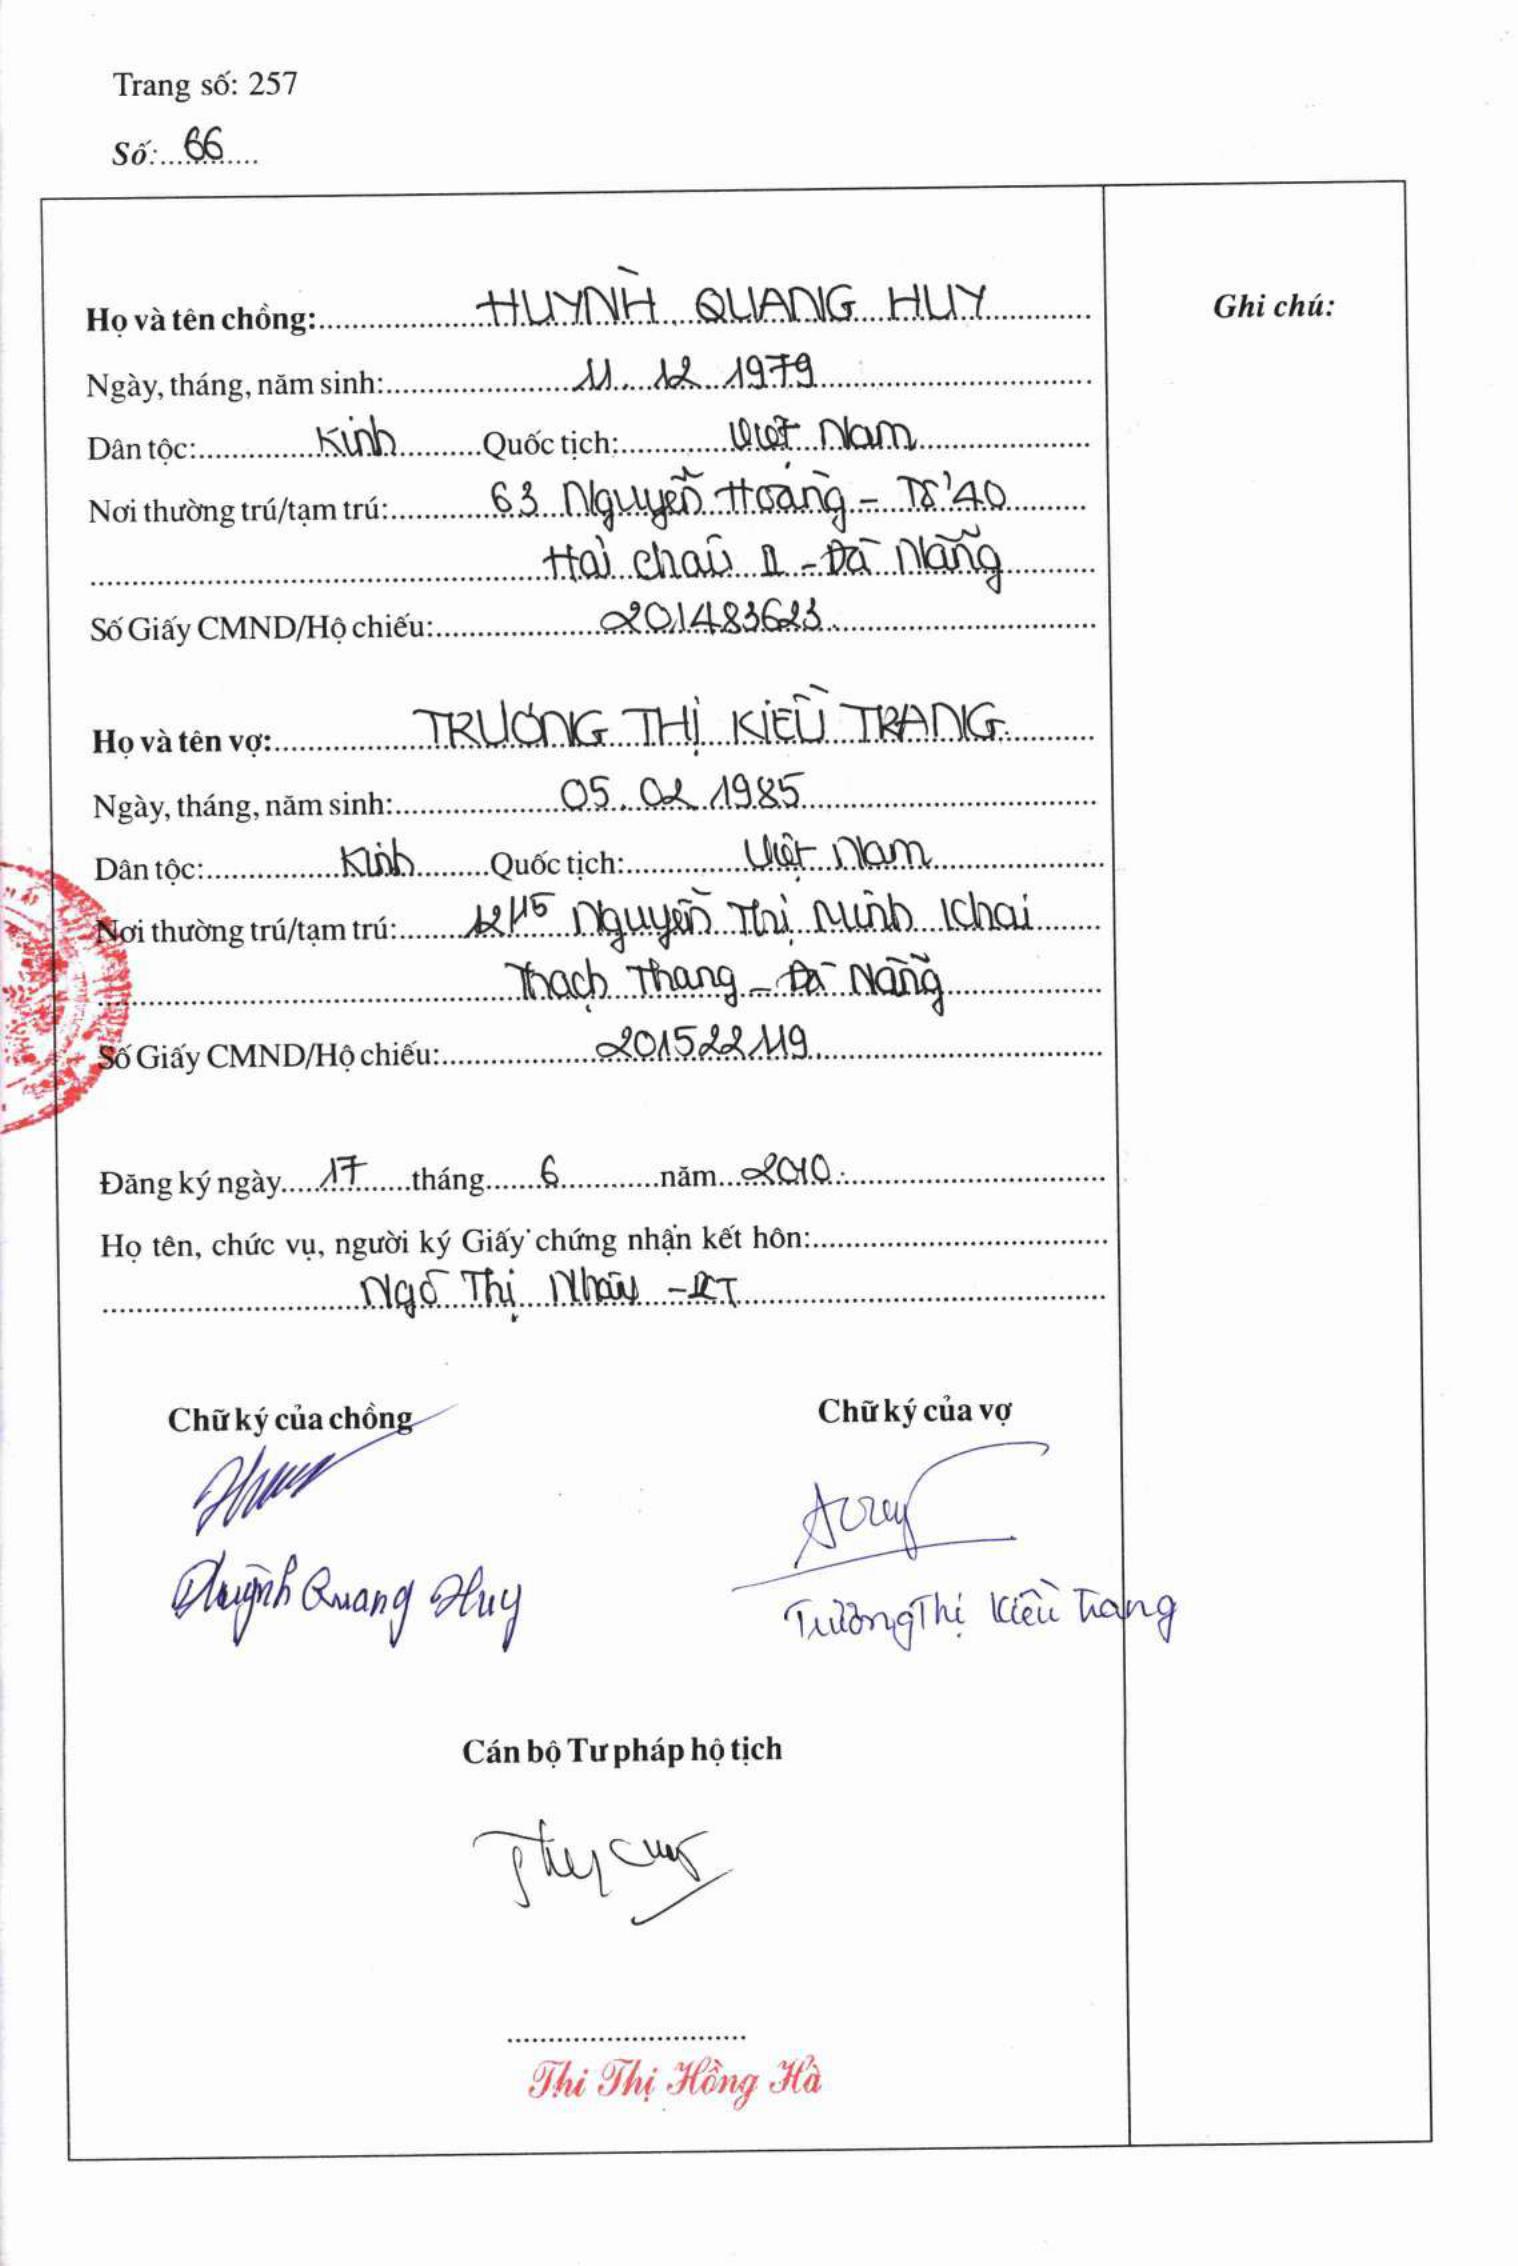 Trang số: 257
Số: 66
Họ và tên chồng: HUỲNH QUANG HUY
Ghi chú:
Ngày, tháng, năm sinh: 11. 12 1979
Dân tộc: Kinh Quốc tịch: Việt Nam
Nơi thường trú/tạm trú: 63 Nguyễn Hoàng - Tổ 40
Hải Châu II - Đà Nẵng
Số Giấy CMND/Hộ chiếu: 201483623
Họ và tên vợ: TRƯƠNG THỊ KIỀU TRANG
Ngày, tháng, năm sinh: 05. 02 1985
Dân tộc: Kinh Quốc tịch: Việt Nam
Nơi thường trú/tạm trú: Nguyễn Thị Minh Khai
Thạch Thang - Đà Nẵng
Số Giấy CMND/Hộ chiếu: 201522119
Đăng ký ngày 17 tháng 6 năm 2010.
Họ tên, chức vụ, người ký Giấy chứng nhận kết hôn:
Ngô Thị - CT
Chữ ký của chồng
Chữ ký của vợ
Huỳnh Quang Huy
Trương Thị Kiều Trang
Cán bộ Tư pháp hộ tịch
Thi Thị Hồng Hà